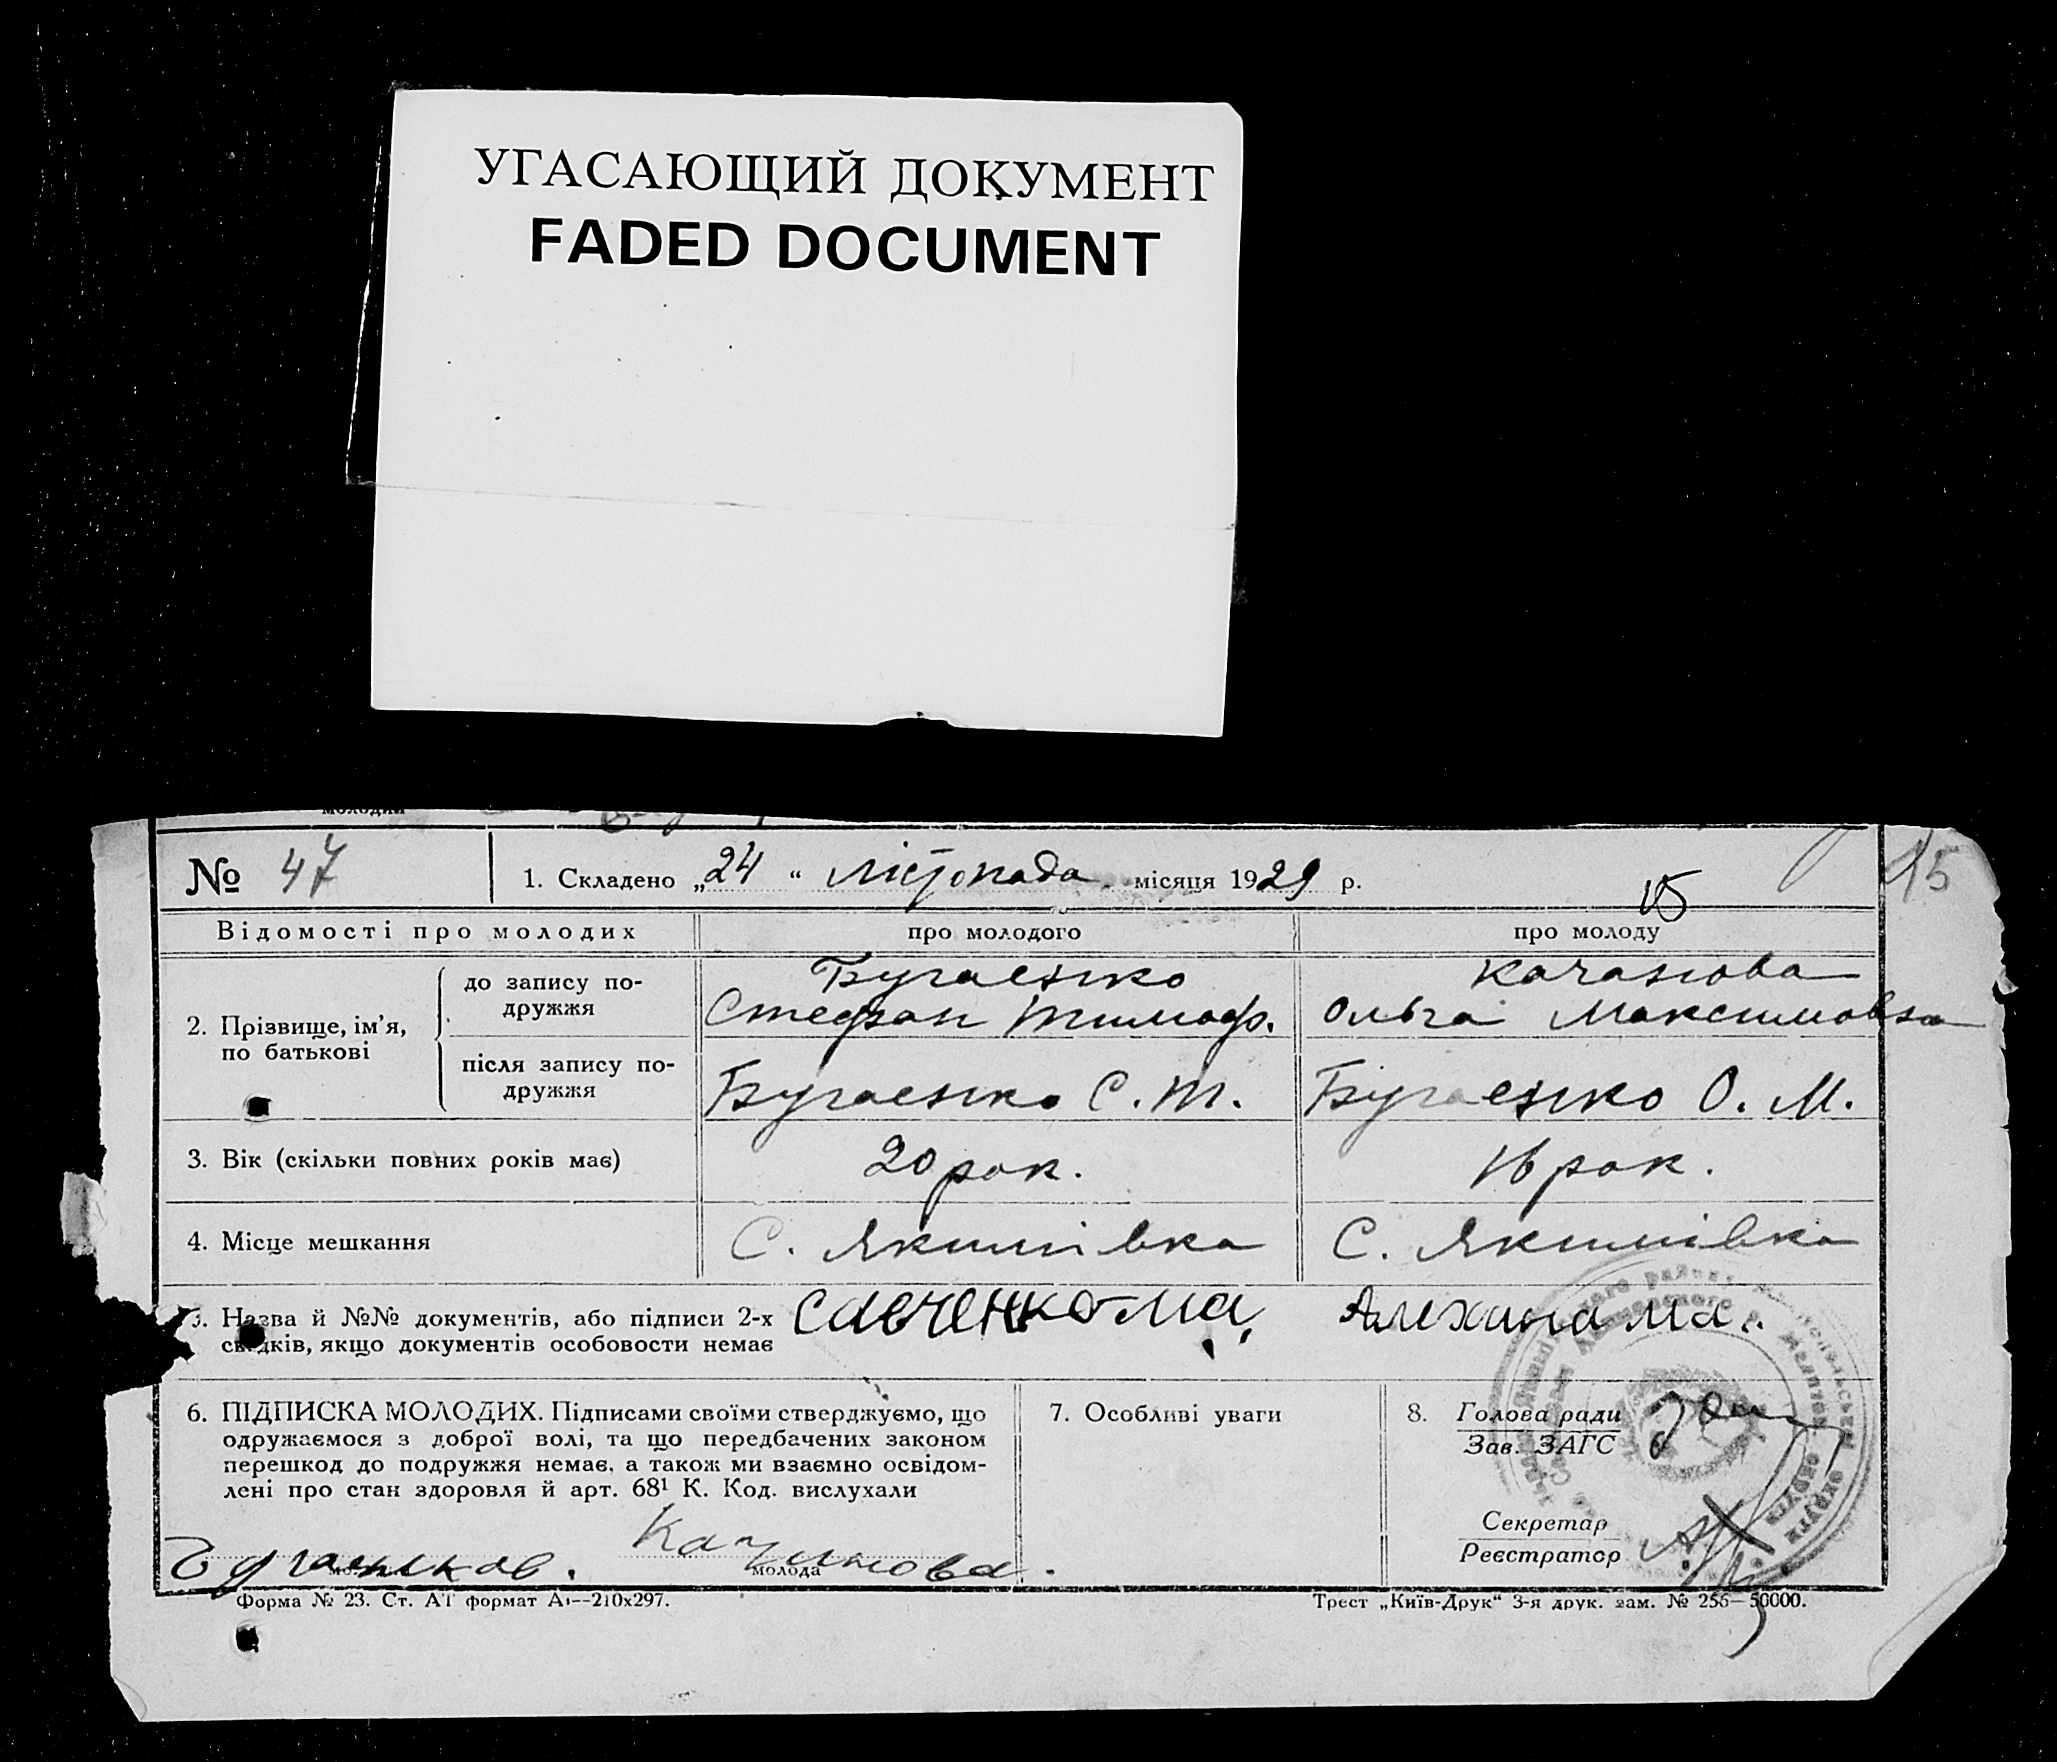 УГАСАЮЩИЙ ДОКУМЕНТ
FADED DOCUMENT
№ 47
1. Складено „24“ лістопада місяця 1929 р.
15
15
Відомості про молодих
про молодого
про молоду
2. Прізвище, ім’я, по батькові
до запису подружжя
Бугаенко
Стефан Тимоф.
Качанова
Ольга Максимовна
після запису подружжя
Бугаенко С. Т.
Бугаенко О. М.
3. Вік (скільки повних років має)
20 рок.
18 рок.
4. Місце мешкання
С. Якимівка
С. Якимівка
5. Назва й №№ документів, або підписи 2-х
свідків, якщо документів особовости немає
Савченко ма.
Алехина ма.
6. ПІДПИСКА МОЛОДИХ. Підписами своїми стверджуємо, що
одружаємося з доброї волі, та що передбачених законом
перешкод до подружжя немає, а також ми взаємно освідом-
лені про стан здоровля й арт. 68¹ К. Код. вислухали
молода
7. Особливі уваги
8. Голова ради
Зав. ЗАГС
Секретар
Реєстратор
Форма № 23. Ст. АТ формат А₄—210х297.
Трест „Київ-Друк“ 3-я друк. зам. № 256—50000.